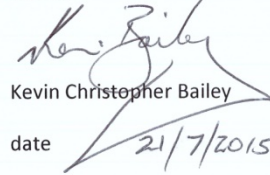 Kevin Bailey
Kevin Christopher Bailey
date 21/7/2015